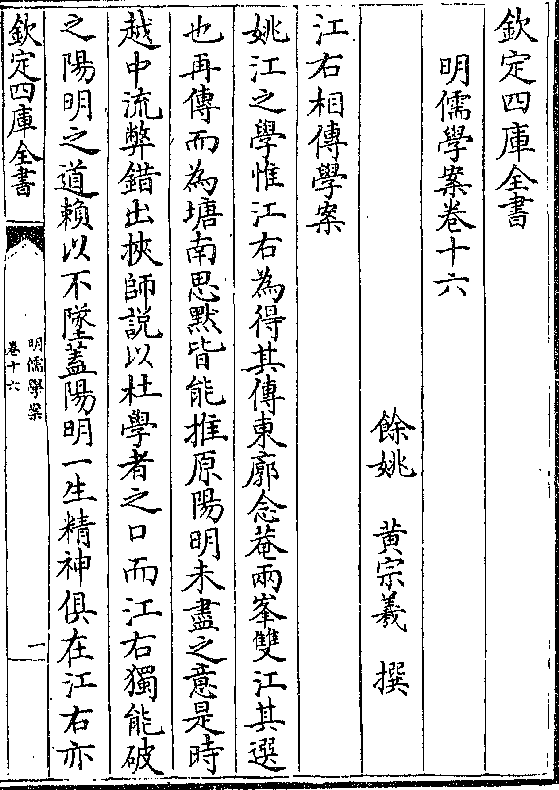 欽定四庫全書
明儒學案卷十六
餘姚 黄宗羲 撰
江右相傳學案
姚江之學惟江右為得其傳東廓念菴兩峯雙江其選
也再傳而為塘南思默皆能推原陽明未盡之意是時
越中流弊錯出挾師説以杜學者之口而江右獨能破
之陽明之道賴以不墜蓋陽明一生精神俱在江右亦
欽定四庫全書
明儒學案
卷十六
一